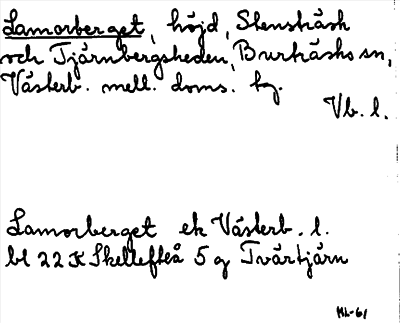 Lamorberget, höjd, Stensträsk
och Tjärnbergsheden, Burträsks sn,
Västerb. mell. doms. hg.
Vb. l.
Lamorberget ek Västerb. l.
bl 22 K Skellefteå 5 g Tvärtjärn
HL-61